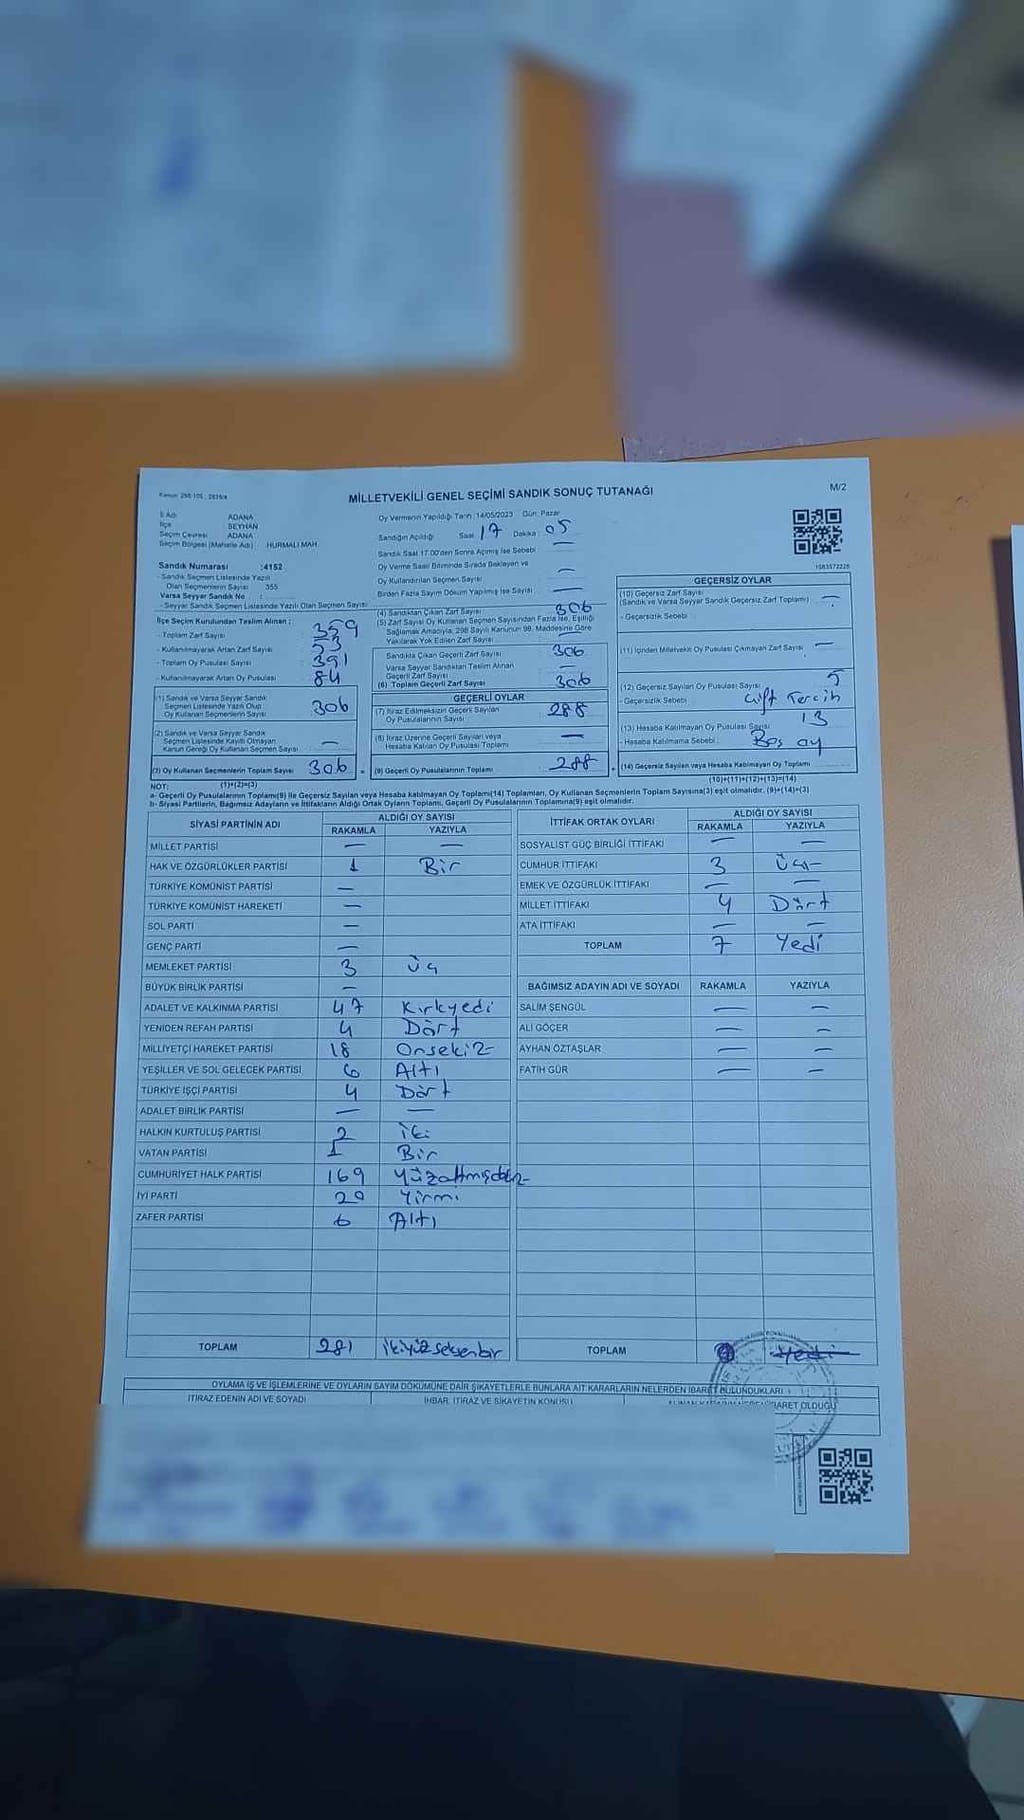 Kanun: 298/105 ; 2839/a
MİLLETVEKİLİ GENEL SEÇİMİ SANDIK SONUÇ TUTANAĞI
M/2
İl Adı ADANA
İlçe SEYHAN
Seçim Çevresi ADANA
Seçim Bölgesi (Mahalle Adı) HURMALI MAH.
Sandık Numarası :4152
- Sandık Seçmen Listesinde Yazılı
Olan Seçmenlerin Sayısı 355
Varsa Seyyar Sandık No :
- Seyyar Sandık Seçmen Listesinde Yazılı Olan Seçmen Sayısı
İlçe Seçim Kurulundan Teslim Alınan ;
- Toplam Zarf Sayısı 359
- Kullanılmayarak Artan Zarf Sayısı 53
- Toplam Oy Pusulası Sayısı 391
- Kullanılmayarak Artan Oy Pusulası 84
(1) Sandık ve Varsa Seyyar Sandık
Seçmen Listesinde Yazılı Olup
Oy Kullanan Seçmenlerin Sayısı 306
(2) Sandık ve Varsa Seyyar Sandık
Seçmen Listesinde Kayıtlı Olmayan
Kanun Gereği Oy Kullanan Seçmen Sayısı —
(3) Oy Kullanan Seçmenlerin Toplam Sayısı 306
(1)+(2)=(3)
Oy Vermenin Yapıldığı Tarih :14/05/2023 Gün: Pazar
Sandığın Açıldığı Saat 17 Dakika : 05
Sandık Saat 17.00'den Sonra Açılmış İse Sebebi —
Oy Verme Saati Bitiminde Sırada Bekleyen ve
Oy Kullandırılan Seçmen Sayısı —
Birden Fazla Sayım Döküm Yapılmış İse Sayısı —
(4) Sandıktan Çıkan Zarf Sayısı 306
(5) Zarf Sayısı Oy Kullanan Seçmen Sayısından Fazla İse, Eşitliği
Sağlamak Amacıyla, 298 Sayılı Kanunun 98. Maddesine Göre
Yakılarak Yok Edilen Zarf Sayısı —
Sandıkta Çıkan Geçerli Zarf Sayısı 306
Varsa Seyyar Sandıktan Teslim Alınan
Geçerli Zarf Sayısı —
(6) Toplam Geçerli Zarf Sayısı 306
GEÇERLİ OYLAR
(7) İtiraz Edilmeksizin Geçerli Sayılan
Oy Pusulalarının Sayısı 288
(8) İtiraz Üzerine Geçerli Sayılan veya
Hesaba Katılan Oy Pusulası Toplamı —
(9) Geçerli Oy Pusulalarının Toplamı 288
1583572228
GEÇERSİZ OYLAR
(10) Geçersiz Zarf Sayısı
(Sandık ve Varsa Seyyar Sandık Geçersiz Zarf Toplamı) —
- Geçersizlik Sebebi
(11) İçinden Milletvekili Oy Pusulası Çıkmayan Zarf Sayısı —
(12) Geçersiz Sayılan Oy Pusulası Sayısı 5
- Geçersizlik Sebebi Çift Tercih
(13) Hesaba Katılmayan Oy Pusulası Sayısı 13
- Hesaba Katılmama Sebebi : Boş oy
(14) Geçersiz Sayılan veya Hesaba Katılmayan Oy Toplamı
(10)+(11)+(12)+(13)=(14)
NOT:
a- Geçerli Oy Pusulalarının Toplamı(9) ile Geçersiz Sayılan veya Hesaba katılmayan Oy Pusulası(14) Toplamları, Oy Kullanan Seçmenlerin Toplam Sayısına(3) eşit olmalıdır. (9)+(14)=(3)
b- Siyasi Partilerin, Bağımsız Adayların ve İttifakların Aldığı Ortak Oyların Toplamı, Geçerli Oy Pusulalarının Toplamına(9) eşit olmalıdır.
SİYASİ PARTİNİN ADI ALDIĞI OY SAYISI
RAKAMLA YAZIYLA
MİLLET PARTİSİ — —
HAK VE ÖZGÜRLÜKLER PARTİSİ 1 Bir
TÜRKİYE KOMÜNİST PARTİSİ —
TÜRKİYE KOMÜNİST HAREKETİ —
SOL PARTİ —
GENÇ PARTİ —
MEMLEKET PARTİSİ 3 üç
BÜYÜK BİRLİK PARTİSİ —
ADALET VE KALKINMA PARTİSİ 47 Kırkyedi
YENİDEN REFAH PARTİSİ 4 Dört
MİLLİYETÇİ HAREKET PARTİSİ 18 Onsekiz
YEŞİLLER VE SOL GELECEK PARTİSİ 6 Altı
TÜRKİYE İŞÇİ PARTİSİ 4 Dört
ADALET BİRLİK PARTİSİ — —
HALKIN KURTULUŞ PARTİSİ 2 iki
VATAN PARTİSİ 1 Bir
CUMHURİYET HALK PARTİSİ 169 Yüzaltmışdokuz
İYİ PARTİ 20 Yirmi
ZAFER PARTİSİ 6 Altı
TOPLAM 281 ikiyüzseksenbir
İTTİFAK ORTAK OYLARI ALDIĞI OY SAYISI
RAKAMLA YAZIYLA
SOSYALİST GÜÇ BİRLİĞİ İTTİFAKI — —
CUMHUR İTTİFAKI 3 üç
EMEK VE ÖZGÜRLÜK İTTİFAKI — —
MİLLET İTTİFAKI 4 Dört
ATA İTTİFAKI — —
TOPLAM 7 Yedi
BAĞIMSIZ ADAYIN ADI VE SOYADI RAKAMLA YAZIYLA
SALİM ŞENGÜL — —
ALİ GÖÇER — —
AYHAN ÖZTAŞLAR — —
FATİH GÜR — —
TOPLAM Yedi
OYLAMA İŞ VE İŞLEMLERİNE VE OYLARIN SAYIM DÖKÜMÜNE DAİR ŞİKAYETLERLE BUNLARA AİT KARARLARIN NELERDEN İBARET BULUNDUKLARI
İTİRAZ EDENİN ADI VE SOYADI İHBAR, İTİRAZ VE ŞİKAYETİN KONUSU